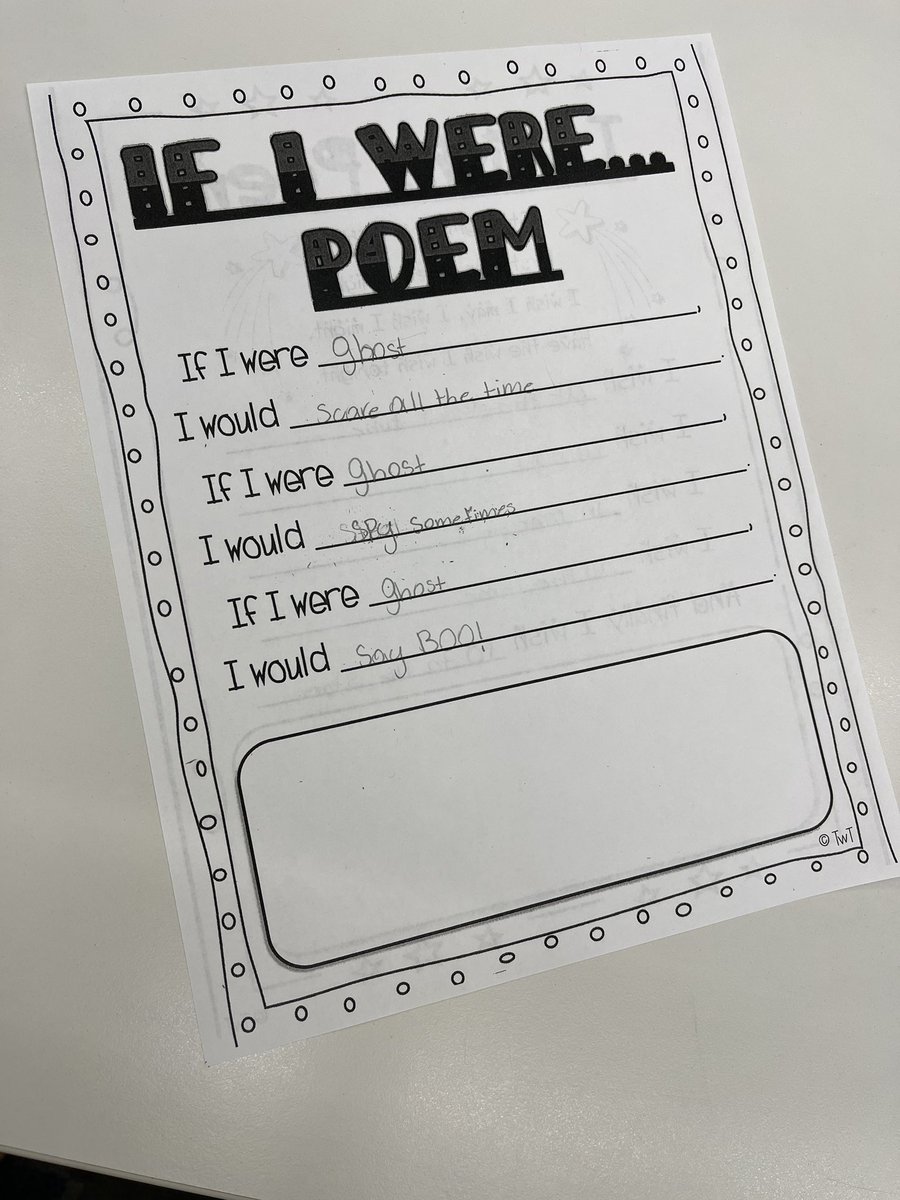 IF I WERE...
POEM
If I were ghost,
I would scare all the time.
If I were ghost,
I would spy sometimes.
If I were ghost,
I would say BOO!.
© TwT